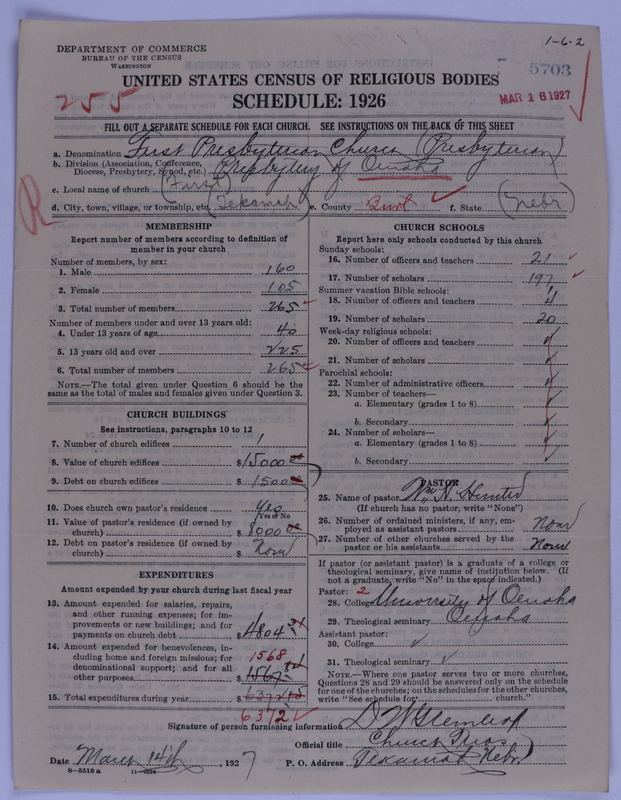 1-6-2
DEPARTMENT OF COMMERCE
BUREAU OF THE CENSUS
WASHINGTON
5703
UNITED STATES CENSUS OF RELIGIOUS BODIES
MAR 16 1927
255
SCHEDULE: 1926
FILL OUT A SEPARATE SCHEDULE FOR EACH CHURCH. SEE INSTRUCTIONS ON THE BACK OF THIS SHEET
a. Denomination First Presbyterian Church (Presbyterian)
b. Division (Association, Conference, Diocese, Presbytery, Synod, etc.) Presbytery of Omaha
c. Local name of church (First)
d. City, town, village, or township, etc. (Tekamah) e. County Burt f. State (Nebr)
R
MEMBERSHIP
Report number of members according to definition of
member in your church
Number of members, by sex:
1. Male 160
2. Female 105
3. Total number of members 265
Number of members under and over 13 years old:
4. Under 13 years of age 40
5. 13 years old and over 225
6. Total number of members 265
NOTE.—The total given under Question 6 should be
same as the total of males and females given under Question 3.
CHURCH BUILDINGS
See instructions, paragraphs 10 to 12
7. Number of church edifices 1
8. Value of church edifices $15000 00
9. Debt on church edifices $1500 00
10. Does church own pastor's residence Yes
Yes or No
11. Value of pastor's residence (if owned by
church) $8000 00
12. Debt on pastor's residence (if owned by
church) $ None
EXPENDITURES
Amount expended by church during last fiscal year
13. Amount expended for salaries, repairs,
and other running expenses; for im-
provements or new buildings; and for
payments on church debt $4804
14. Amount expended for benevolences, in-
cluding home and foreign missions; for
denominational support; and for all
other purposes 1568 $1567
15. Total expenditures during year $6372
6372
CHURCH SCHOOLS
Report here only schools conducted by this church
Sunday schools:
16. Number of officers and teachers 21
17. Number of scholars 197
Summer vacation Bible schools:
18. Number of officers and teachers 4
19. Number of scholars 20
Week-day religious schools:
20. Number of officers and teachers
21. Number of scholars
Parochial schools:
22. Number of administrative officers
23. Number of teachers—
a. Elementary (grades 1 to 8)
b. Secondary
24. Number of scholars—
a. Elementary (grades 1 to 8)
b. Secondary
PASTOR
25. Name of pastor Wm. N. Hunter
(If church has no pastor, write "None")
26. Number of ordained ministers, if any, em-
ployed as assistant pastors None
27. Number of other churches served by the
pastor or his assistants None
If pastor (or assistant pastor) is a graduate of a college or
theological seminary, give name of institution below. (If
not a graduate, write "No" in the space indicated.)
Pastor: 2
28. College University of Omaha
29. Theological seminary Omaha
Assistant pastor:
30. College
31. Theological seminary
NOTE.—Where one pastor serves two or more churches,
Questions 28 and 29 should be answered only on the schedule
for one of the churches; on the schedules for the other churches,
write "See schedule for church."
Signature of person furnishing information
Official title Church Treas
Date March 14th, 1927 P. O. Address Tekamah Nebr
8—5518 a